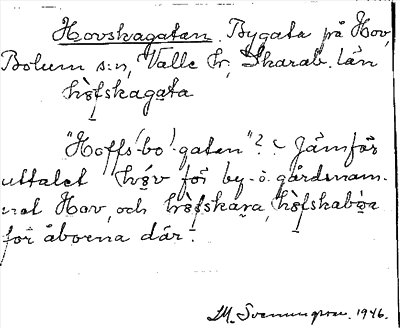 Hovskagatan. Bygata på Hov,
Bolum s:n, Valle hr, Skarab. län
hòfskagata
"Hoffs'bo'gaten"? < Jämför
uttalet hóv för by- o. gårdsnam-
net Hov, och hòfskara, hòfskaboa
för åborna där.
M. Svenungsson. 1946.